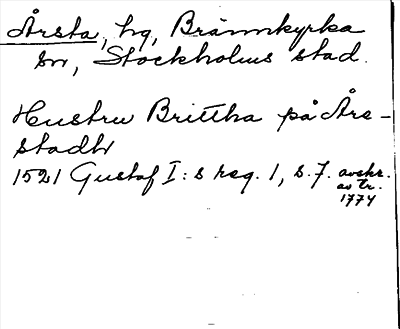 Årsta, hg, Brännkyrka
sn, Stockholms stad.
Hustru Brittha på Års-
stadh
1521 Gustaf I:s reg. 1, s. 7. avskr.
av tr.
1774